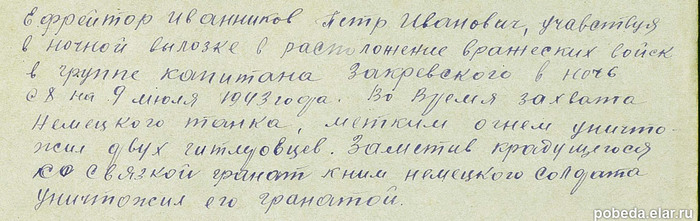 Ефрейтор Иванников Петр Иванович, учавствуя
в ночной вылозке в расположение вражеских войск
в группе капитана Закревского в ночь
с 8 на 9 июля 1943 года. Во время захвата
немецкого танка, метким огнем уничто-
жил двух гитлеровцев. Заметив крадущегося
со связкой гранат к ним немецкого солдата
уничтожил его гранатой.
pobeda.elar.ru